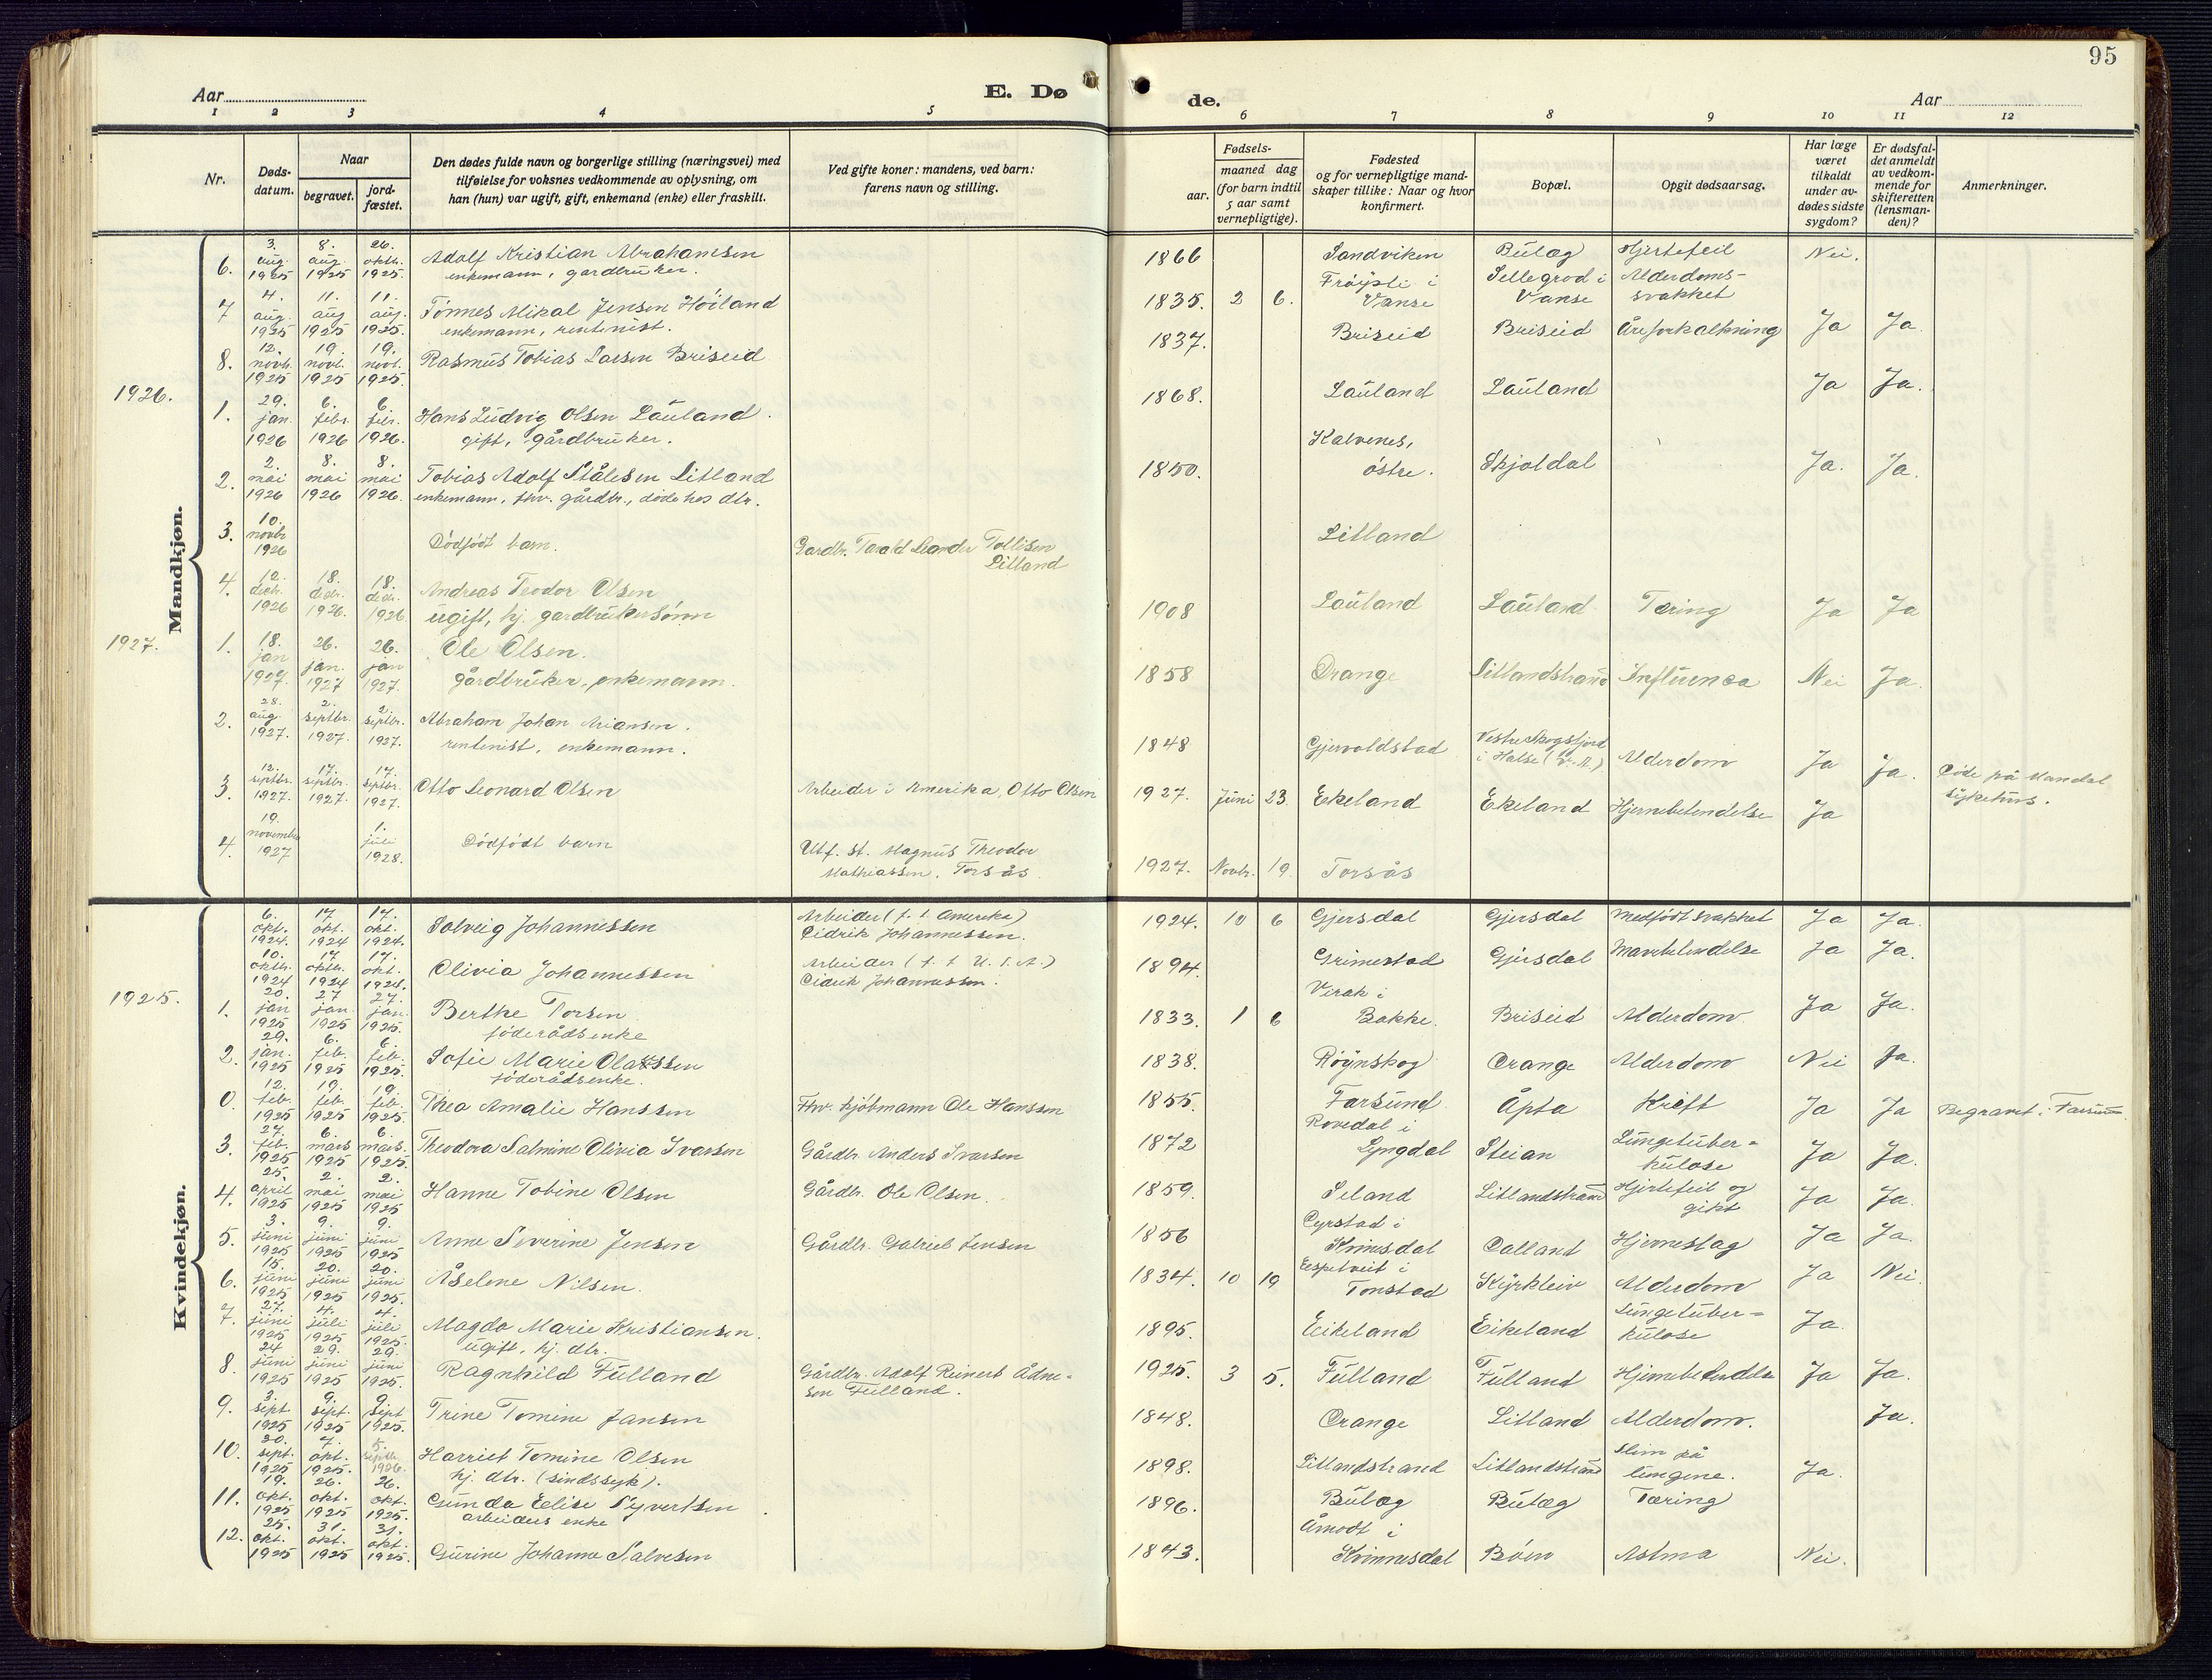 95
Aar
E. Dø
de.
Aar
1 2 3 4 5 6 7 8 9 10 11 12
Nr.
Døds-
datum.
Naar
begravet.
jord-
fæstet.
Den dødes fulde navn og borgerlige stilling (næringsvei) med
tilføielse for voksnes vedkommende av oplysning, om
han (hun) var ugift, gift, enkemand (enke) eller fraskilt.
Ved gifte koner: mandens, ved barn:
farens navn og stilling.
Fødsels-
aar.
maaned dag
(for barn indtil
5 aar samt
vernepligtige).
Fødested
og for vernepligtige mand-
skaper tillike: Naar og hvor
konfirmert.
Bopæl.
Opgit dødsaarsag.
Har læge
været
tilkaldt
under av-
dødes sidste
sygdom?
Er dødsfal-
det anmeldt
av vedkom-
mende for
skifteretten
(lensman-
den)?
Anmerkninger.
Mandkjøn.
6. 3. aug. 1925 8. aug. 1925 26. oktbr. 1925. Adolf Kristian Abrahamsen
enkemann, gardbruker.
1866 Sandviken Bulæg Hjertefeil Nei.
7 4. aug. 1925 11. aug 1925 11. aug. 1925. Tønnes Mikal Jensen Høiland
enkemann, rentenist.
1835. 2 6. Frøysti i Vanse Sellegrod i Vanse Alderdoms-
svakhet
8. 12. novb. 1925 19. novb. 1925 19. novb. 1925. Rasmus Tobias Larsen Briseid
1837. Briseid Briseid Åreforkalkning Ja Ja
1926.
1. 29. jan. 1926 6. febr. 1926 6. febr. 1926. Hans Ludvig Olsen Lauland.
gift, gårdbruker.
1868. Lauland Lauland Ja Ja.
2. 2. mai 1926 8. mai 1926 8. mai 1926. Tobias Adolf Stålesen Litland
enkemann, fhv. gårdbr., døde hos dtr.
1850. Kalvenes, østre. Skjoldal Ja. Ja.
3. 10. novbr 1926 Dødfødt barn. Gardbr. Tarald Leander Tollisen
Litland
Litland
4. 12. decbr. 1926 18. decbr. 1926. 18. decbr. 1926 Andreas Teodor Olsen
ugift, hj. gardbrukersønn
1908 Lauland Lauland Tæring Ja Ja
1927.
1. 18. jan 1927. 26. jan. 1927 26. jan 1927. Ole Olsen.
gårdbruker, enkemann.
1858 Drange Litlandstrand Influensa Nei Ja.
2. 28. aug. 1927. 2. septbr. 1927. 2. septbr. 1927. Abraham Johan Ariansen.
rentenist, enkemann.
1848 Gjervoldstad Vestre Skogsfjord
i Halse Alderdom Ja Ja. Døde på Mandal
sykehus.
3. 12. septbr. 1927. 17. septbr. 1927 17. septbr. 1927. Otto Leonard Olsen Arbeider i Amerika, Otto Olsen
1927. Juni 23. Ekeland Ekeland Hjernebetendelse Ja
4. 19. november 1927 1. juli 1928. Dødfødt barn Utf. st. Magnus Theodor
Mathiassen, Torsås.
1927. Novbr. 19. Torsås
Kvindekjøn.
6. okt. 1924. 17 okt. 1924 17. okt. 1924. Solveig Johannessen Arbeider (f. t. Amerika)
Didrik Johannessen.
1924. 10 6 Gjersdal Gjersdal Medfødt svakhet Ja Ja.
10. oktbr. 1924 17 oktbr. 1924 17. okt. 1924. Olivia Johannessen Arbeider (f. t. U.S.A.)
Didrik Johannessen.
1894. Grimestad Gjersdal Mavebetendelse Ja Ja.
1925.
1. 20. jan 1925 27 jan. 1925 27. jan. 1925. Berthe Torsen
føderådsenke
1833. 1 6 Virak i Bakke. Briseid Alderdom Ja Ja.
2. 29. jan. 1925 6. feb. 1925 6. feb. 1925. Sofie Marie Olaussen
føderådsenke.
1838. Røynskog Drange Alderdom Nei Ja.
0. 12. feb. 1925 19. feb. 1925 19. feb. 1925. Thea Amalie Hanssen Fhv. kjøbmann Ole Hanssen
1855. Farsund Åpta Kreft Ja Ja Begravet i Farsund
3. 27. feb. 1925 6. mars 1925 6. mars. 1925. Theodora Salmine Olivia Ivarsen Gårdbr. Anders Ivarsen
1872 Rovedal i Lyngdal Steian Lungetuber-
kulose Ja Ja.
4. 25. april 1925 2. mai 1925 2. mai 1925 Hanne Tobine Olsen Gårdbr. Ole Olsen.
1859. Seland Litlandstrand Hjertefeil og
gikt Ja Ja.
5. 3. juni 1925 9. juni 1925 9. juni 1925. Anne Severine Jensen Gårdbr. Gabriel Jensen
1856 Dyrstad i Kvinesdal Dalland Hjerneslag Ja Ja.
6. 15. juni 1925 20. juni 1925 20. juni 1925. Åselene Nilsen.
1834. 10 19 Espetveit i Tonstad Kyrkleiv Alderdom Ja Nei.
7. 27. juni 1925 4. juli 1925 4. juli 1925. Magda Marie Kristiansen.
ugift, hj. dtr.
1895. Eikeland Eikeland Lungetuber-
kulose Ja.
8. 24 juni 1925 29. juni 1925 29. juni 1925. Ragnhild Fulland Gårdbr. Adolf Reinert Ådne-
sen Fulland.
1925. 3 5. Fulland Fulland Hjernebetendelse Ja Ja.
9. 3. sept 1925 9. sept. 1925 9. sept 1925. Trine Tomine Jansen
1848. Drange Litland Alderdom. Ja.
10. 30. sept. 1925 7. okt. 1925. 5. septbr. 1926. Harriet Tomine Olsen
hj. dtr. (sindssyk).
1898. Litlandstrand Litlandstrand Slim på
lungene. Ja.
11. 19. okt. 1925 26. okt. 1925 26. okt. 1925. Gunda Elise Syvertsen
arbeiders enke
1896. Bulæg Bulæg Tæring
12. 25. okt. 1925 31. okt. 1925 31. okt. 1925. Gurine Johanne Salvesen
1843. Åmodt i Kvinnesdal Bøen Astma Nei.